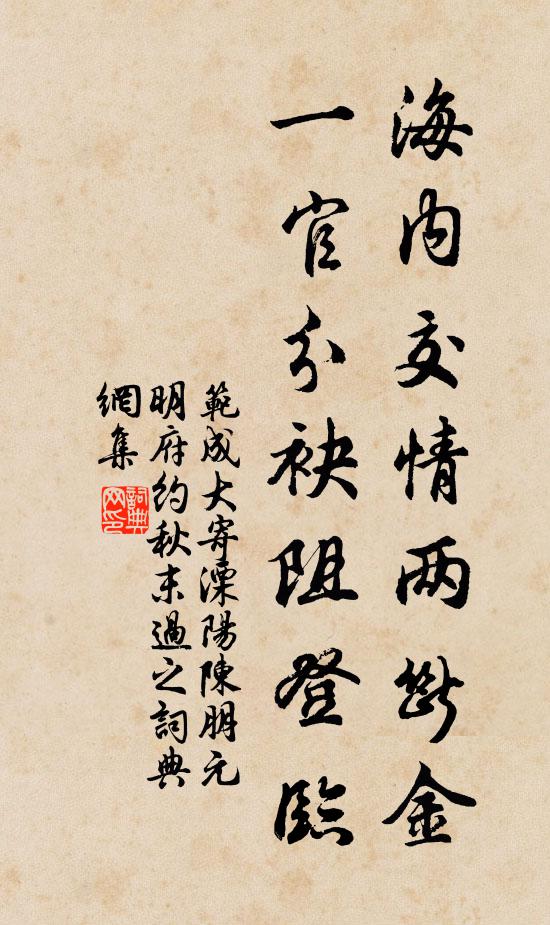 海内交情两断金
一官分袂阻登临
範成大寄溧陽陳朋元
明府約秋末過之詞典
網集
詞典網印